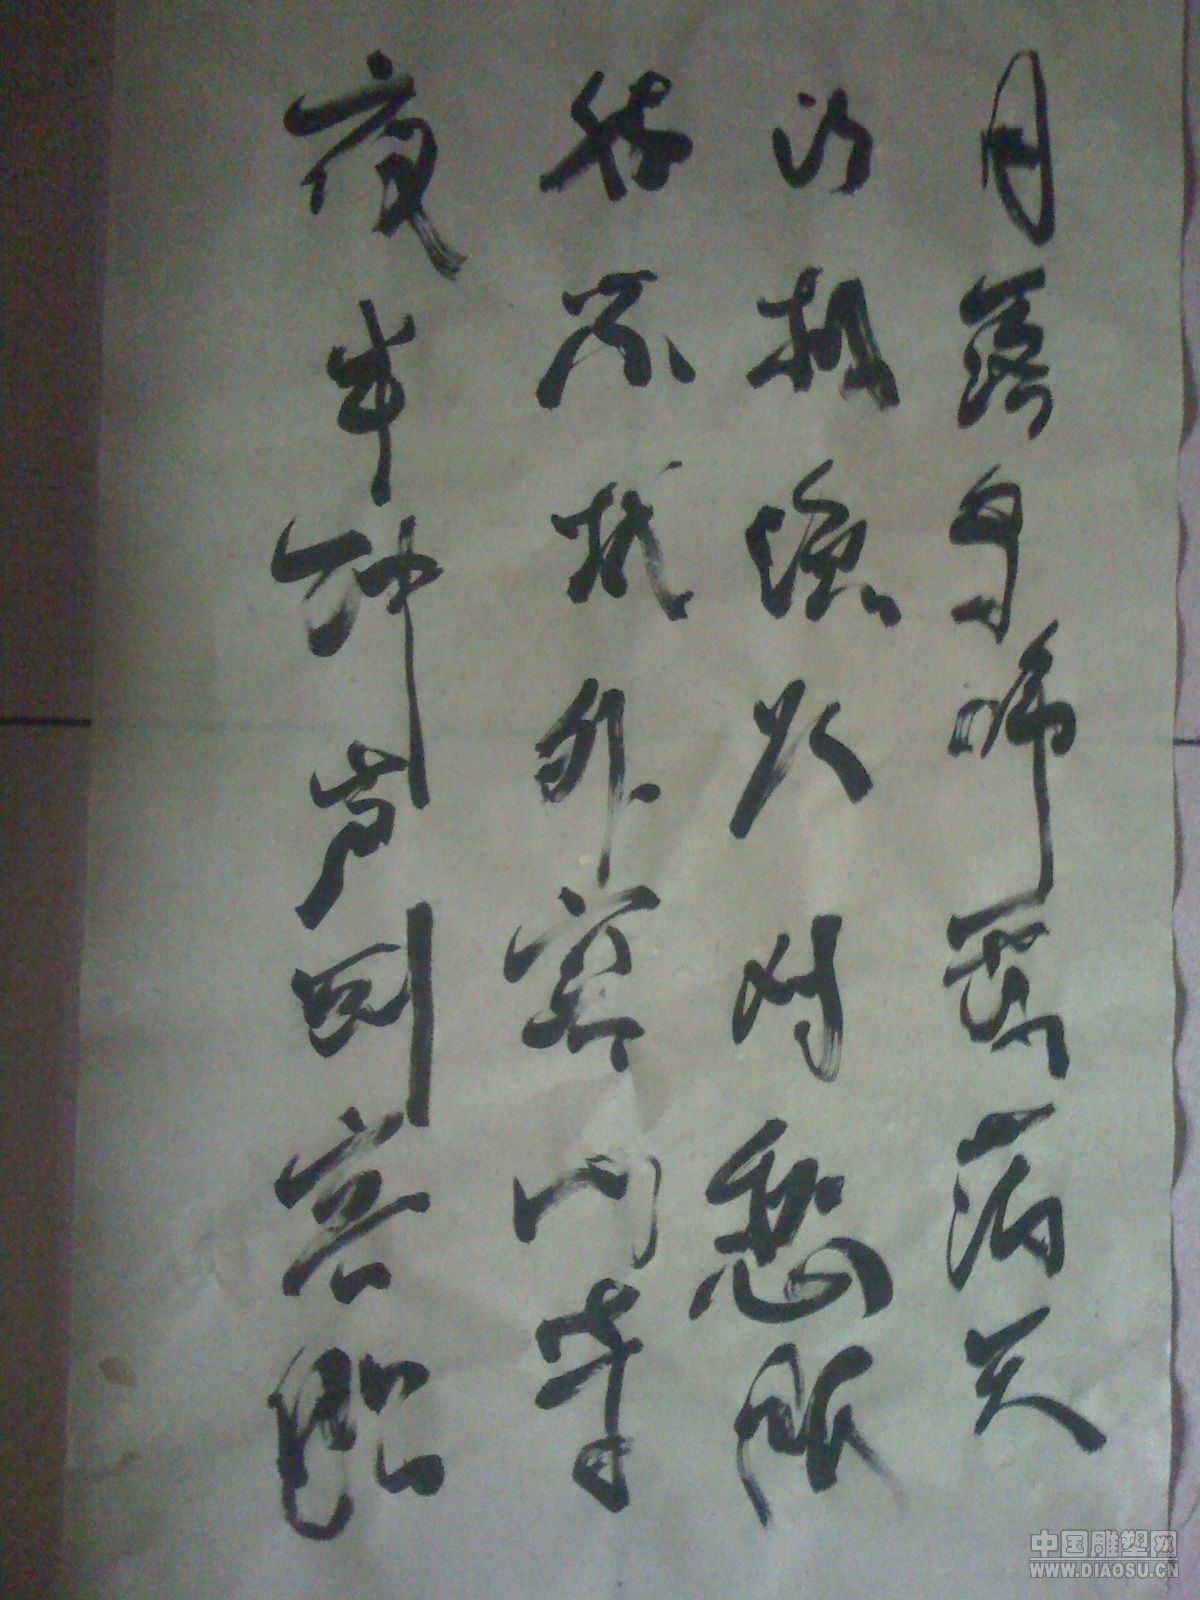 月落乌啼霜满天
江枫渔火对愁眠
姑苏城外寒山寺
夜半钟声到客船
中国雕塑网
WWW.DIAOSU.CN